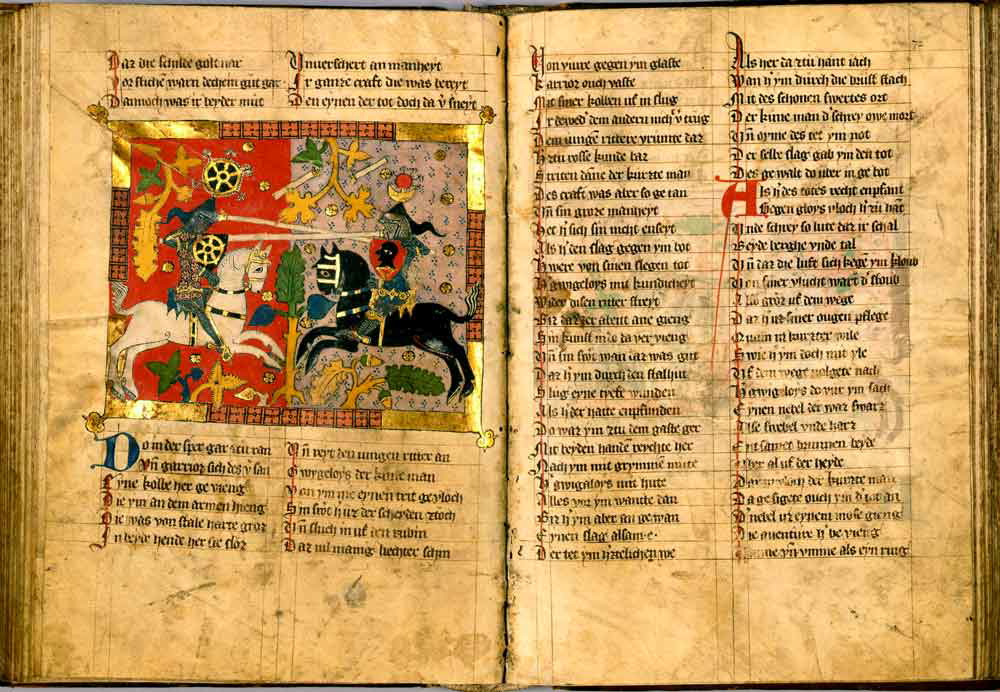 Daz die schilde golt var
Vor stichē warn dechem gūt gar
Dannoch was ir beyder mūt
Vnuerschert an manheyt
Ir ganze craft die was bereyt
Den eynen der tot doch da v̄ sneyt
Do in der sper gar zu ran
Vn̄ garrior sich des v̄ san
Eyne kolbe her ge vieng
Die ym an dem armen hieng
Die was von stale harte groz
In beyde hende her sie sloz
Vn̄ reyt den iungen ritter an
Gwygeloys der kūne man
Von ym nie eynen trit geyloch
Sin swt h̄ uz der scheyden zoch
Vn̄ sluch in uf den rubin
Daz nl manig liechter schin
Von yure gegen ym glaste
Karrior ouch vaste
Mit siner kolben uf in slug
Ir dewed̄ dem andern nich v̄ trug
Dem iungē rittere vrumte daz
H̄ zu rosse kunde baz
Striten dāne der kurte man
Des craft was aber so ge tan
Vn̄ sin groze manheyt
Het h̄ sich sin nicht enseyt
Als h̄ den slag gegen ym bot
H̄ were von sinen slegen tot
H̄ gwigeloys mit kundicheyt
Wider disen ritter streyt
Biz daz der abent ane gieng
Sin kunst in do da ver vieng
Vn̄ sin swt wan iz was gut
Daz h̄ ym durch den stalhut
Slug eyne tyefe wunden
Als h̄ der hatte enpfunden
Do waz ym zu dem gaste ger
Mit beyden handē rechte her
Nach ym mit grymme mute
H̄ gwigaloys mit hute
Alles vor ym wante dan
Biz h̄ ym aber an ge wan
Eynen slag alsam e
Der tet ym h̄tzelichen we
Als her dar zu hant iach
Wan h̄ ym durch die brust stach
Mit des schonen swertes ort
Der kune man d̄ schrey owe mort
Vn̄ oyme des tet ym not
Der selbe slag gab ym den tot
Des ge walt do uber in ge bot
Als h̄ des todes recht enpfant
Gegen gloys vloch h̄ zu hāt
Vnde schrey so lute daz iz schal
Beyde berghe vnde tal
Vn̄ daz die luft sich kegē ym kloub
Von siner vlucht wart d̄ stoub
Also groz uf dem wege
Daz h̄ uz siner ougen pflege
Quam in kurtzer wile
Swie h̄ ym doch mit yle
Vf dem wege volgete nach
H̄ gwigaloys do vur ym sach
Eynen nebel der waz swarz
Alse swebel vnde harz
Ent samet brunnen beyde
Aber al uf der heyde
Dar in vloch der kurte man
Da ge sigete ouch ym d̄ tot an
D̄ nebel uz eynem mose gieng
Die auenture h̄ be vieng
vn̄ ymme als eyn ring